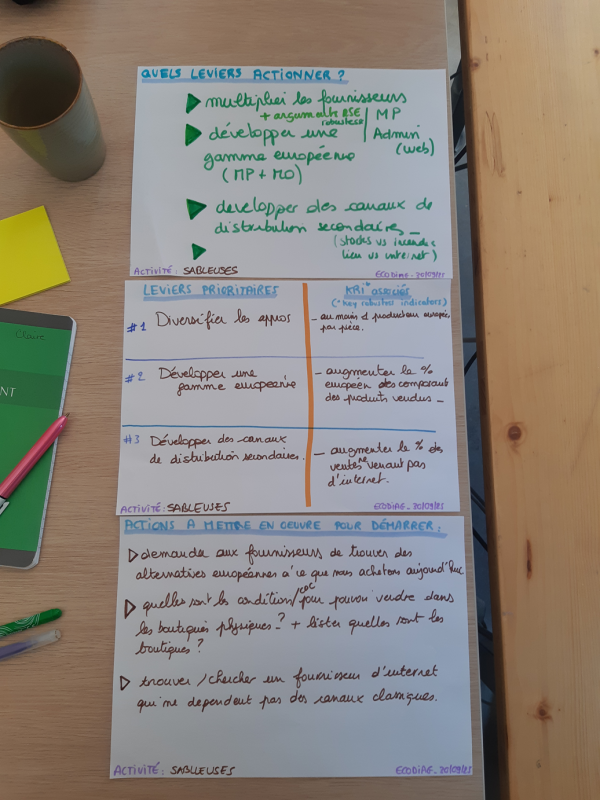 QUELS LEVIERS ACTIONNER ?
multiplier les fournisseurs
+ arguments RSE
robustesse
MP
développer une
Admin
(web)
gamme européenne
(MP + MO)
développer des canaux de
distribution secondaires
(stocks vs incendie
lieu vs internet)
ACTIVITÉ : SABLEUSES
ECODIAG - 30/09/25
LEVIERS PRIORITAIRES
KRI* ASSOCIÉS
(* key robustness indicators)
#1 Diversifier les appros
- au moins 1 producteur européen
par pièce.
#2 Développer une
gamme européenne
- augmenter le %
européen des composants
des produits vendus -
#3 Développer des canaux
de distribution secondaires.
- augmenter le % des
ventes ne venant pas
d'internet.
ACTIVITÉ : SABLEUSES
ECODIAG - 30/09/25
ACTIONS À METTRE EN OEUVRE POUR DÉMARRER :
demander aux fournisseurs de trouver des
alternatives européennes à ce que nous achetons aujourd'hui
quelles sont les conditions/CDC pour pouvoir vendre dans
les boutiques physiques ? + lister quelles sont les
boutiques ?
trouver / chercher un fournisseur d'internet
qui ne dépendent pas des canaux classiques.
ACTIVITÉ : SABLEUSES
ECODIAG - 30/09/25
Claire
NT